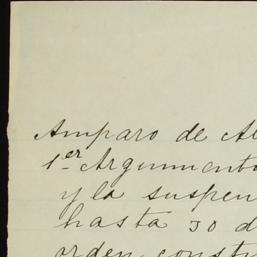 Amparo de A
1er Argumento
y la suspen
hasta 30 d
orden constu